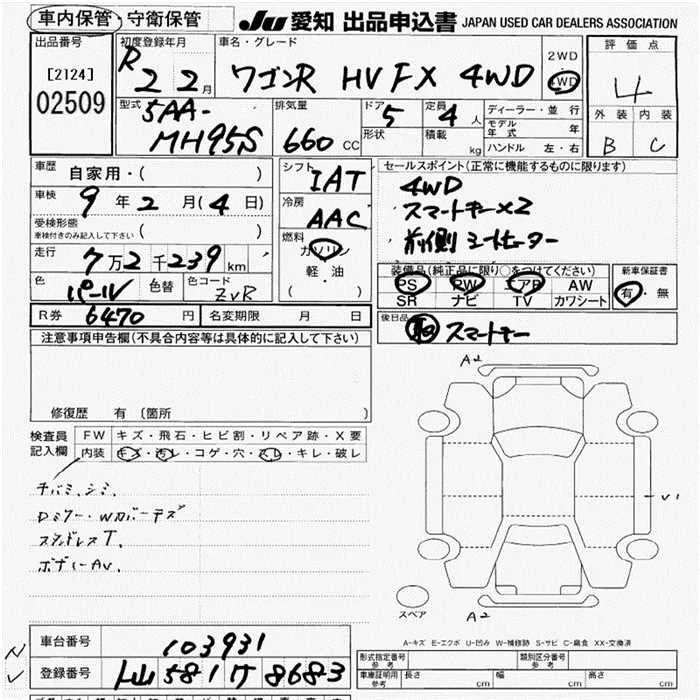 車内保管・守衛保管
JU 愛知 出品申込書 JAPAN USED CAR DEALERS ASSOCIATION
出品番号
[2124]
02509
初度登録年月
R2 2月
車名・グレード
ワゴンR HV FX 4WD
2WD
4WD
評価点
4
外装 内装
B C
型式
5AA-
MH95S
排気量
660 CC
ドア 5
形状
定員 4人
積載 kg
ディーラー・並行
モデル年式 年
ハンドル 左・右
車歴 自家用・( )
車検 9年2月(4日)
受検形態
車検付きのみ記入して下さい ( )
走行 7万2千239km
色 パール 色替 色コード ZVR
シフト IAT
冷房 AAC
燃料
ガソリン
軽・油
( )
セールスポイント(正常に機能するものに限ります)
4WD
スマートキー×2
前側シートヒーター
装備品(純正品に限り○をつけてください)
PS PW エアB AW
SR ナビ TV カワシート
新車保証書
有・無
R券 6470円 名変期限 月 日
後日品 スマートキー
注意事項申告欄(不具合内容等は具体的に記入して下さい)
修復歴 有(箇所 )
検査員
記入欄
FW キズ・飛石・ヒビ割・リペア跡・X要
内装 キズ・汚レ・コゲ・穴・スレ・キレ・破レ
チバミ、シミ、
Dミラー・Wカバーキズ
ステンドレスT.
ボディーAu.
A2
V1
A2
スペア
A-キズ E-エクボ U-凹み W-補修跡 S-サビ C-腐食 XX-交換済
車台番号 103931
登録番号 581 ワ 8683
形式指定番号
参考
類別区分番号
参考
車庫証明用
参考
長さ cm 幅 cm 高さ cm